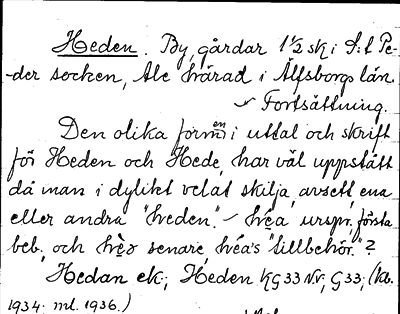 Heden. By, gårdar 1½ sk i S:t Pe-
-der socken, Ale härad i Älfsborgs län.
Fortsättning.
Den olika formen i uttal och skrift
för Heden och Hede, har väl uppstått
då man i dylikt velat skilja, avsett, ena
eller andra "heden." hea urspr. första
beb., och senare, hea's "tillbehör."?
Hedan ek.; Heden KG33NV; G33; (kb.
1934. ml. 1936.)